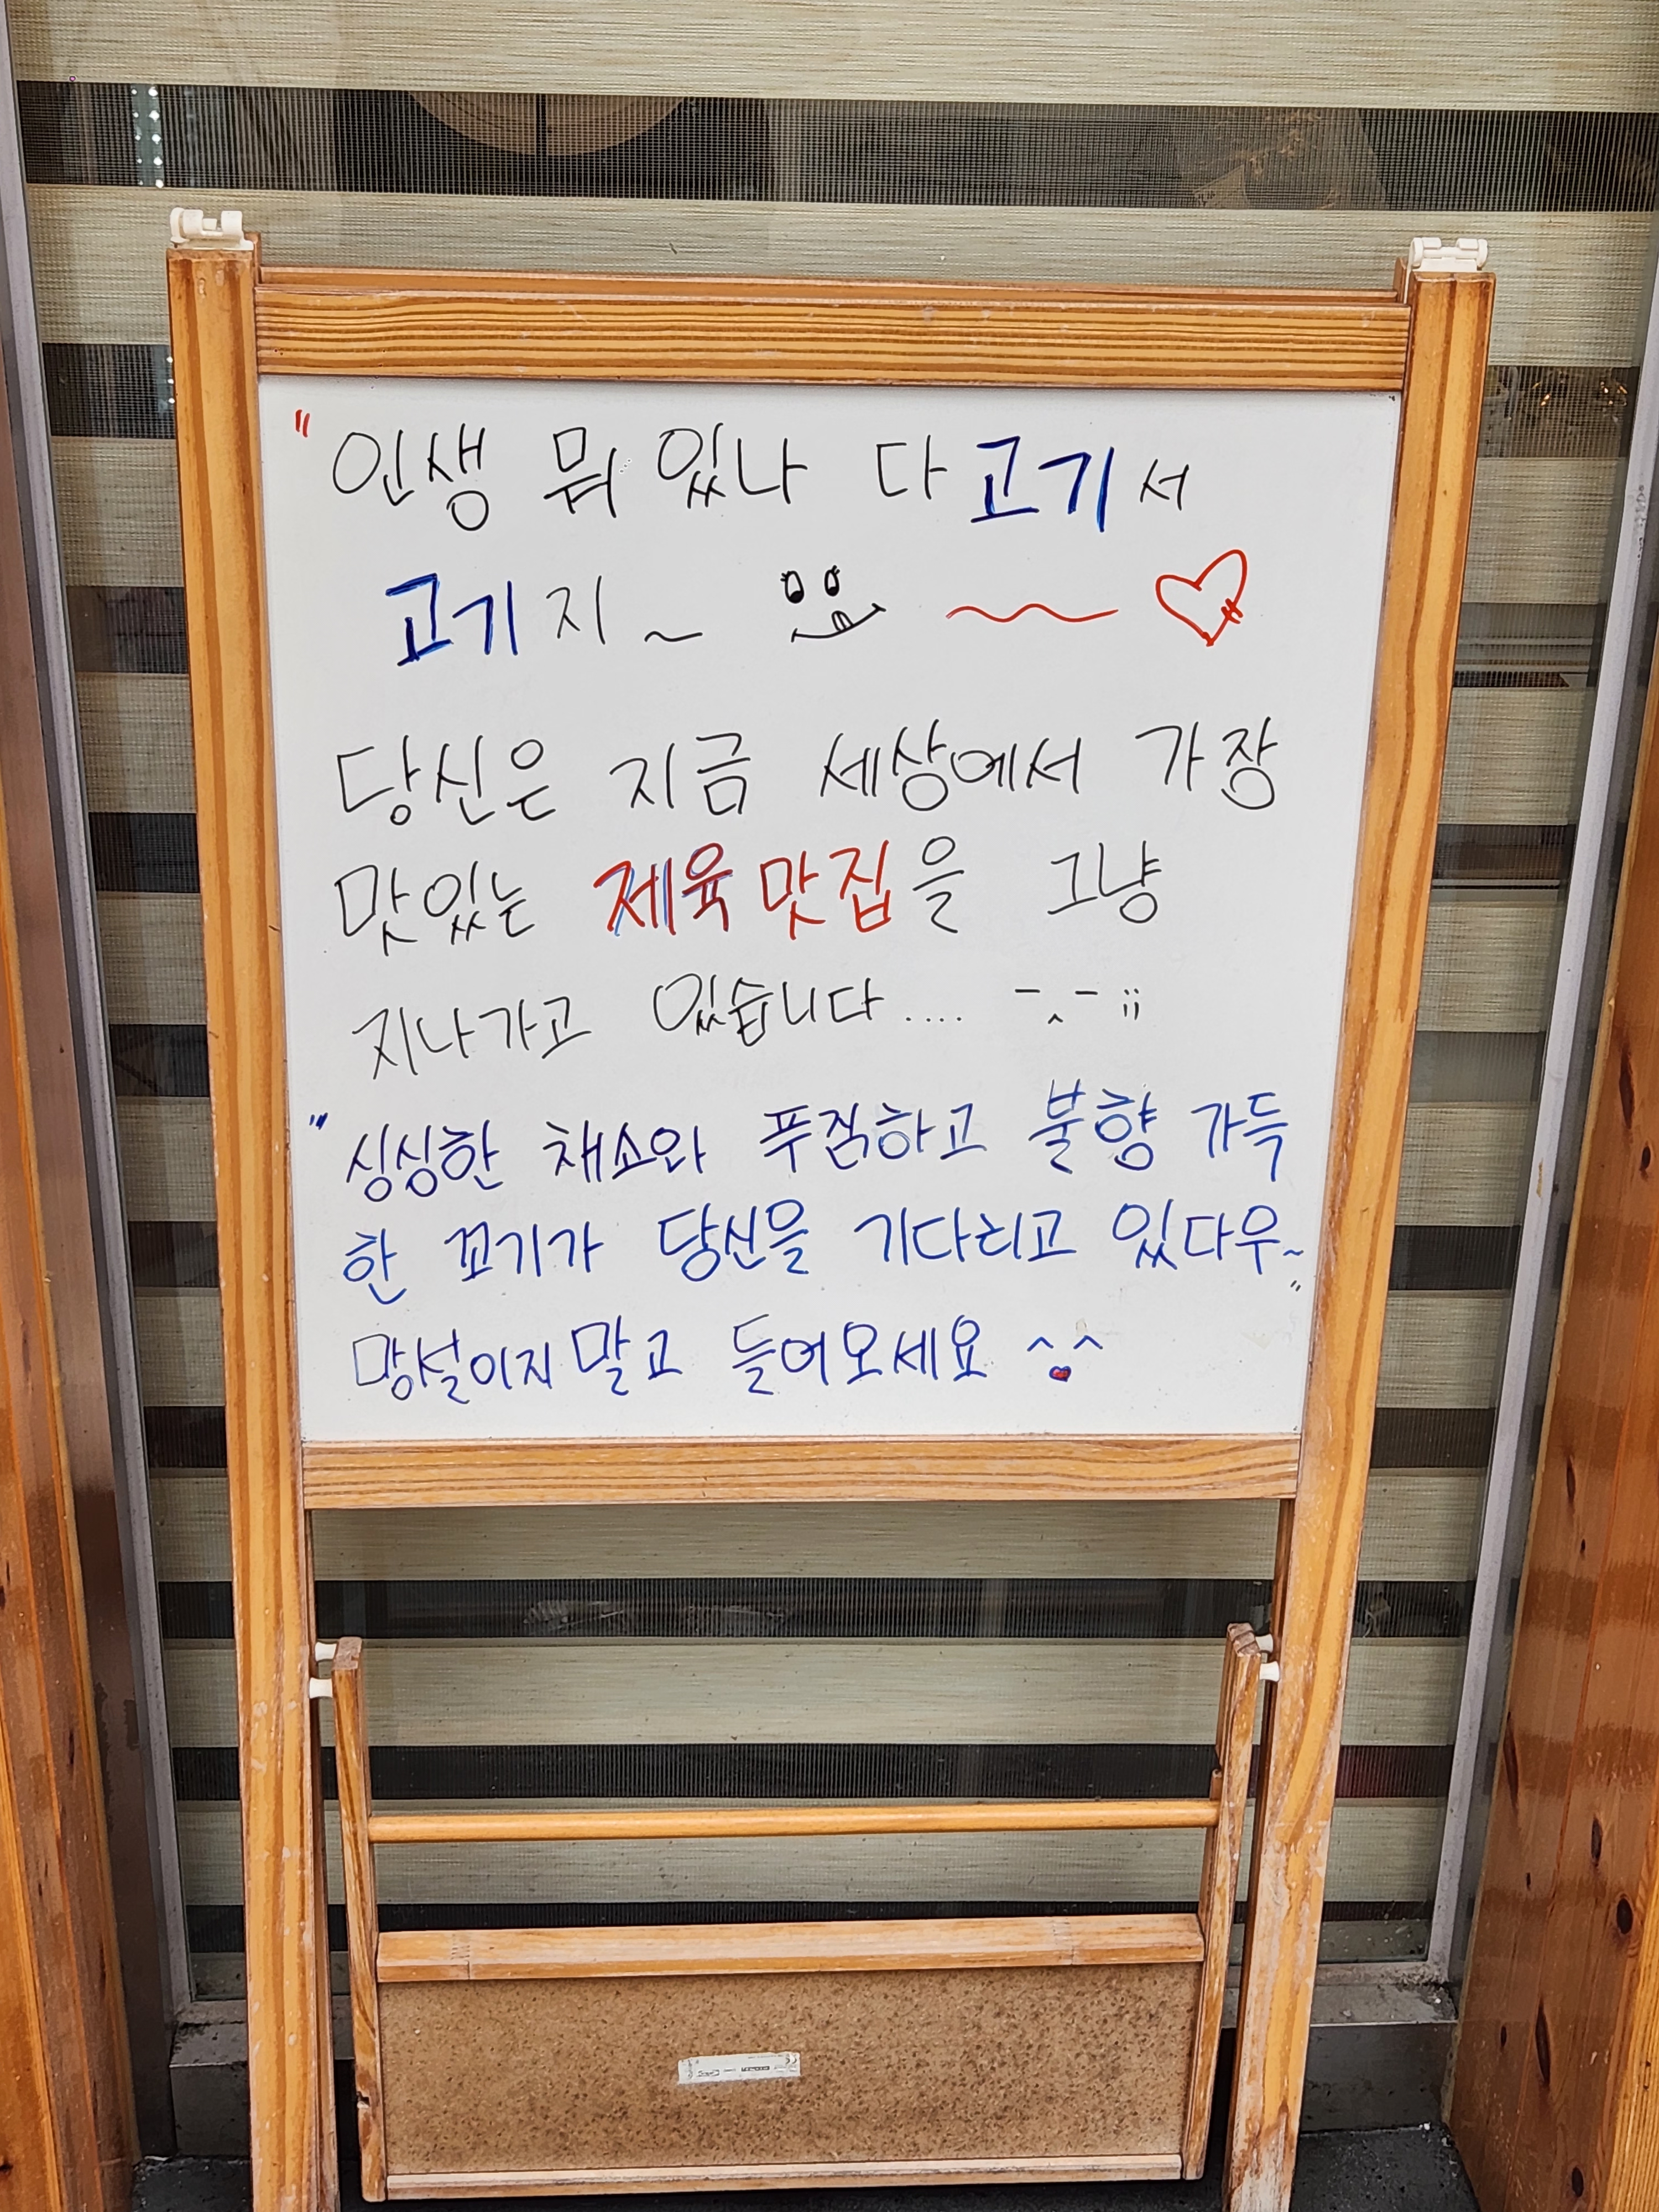 "인생 뭐 있나 다 고기서
고기지~
당신은 지금 세상에서 가장
맛있는 제육 맛집을 그냥
지나가고 있습니다.... -.-;;
"싱싱한 채소와 푸짐하고 불향 가득
한 꼬기가 당신을 기다리고 있다우~"
망설이지 말고 들어오세요 ^^